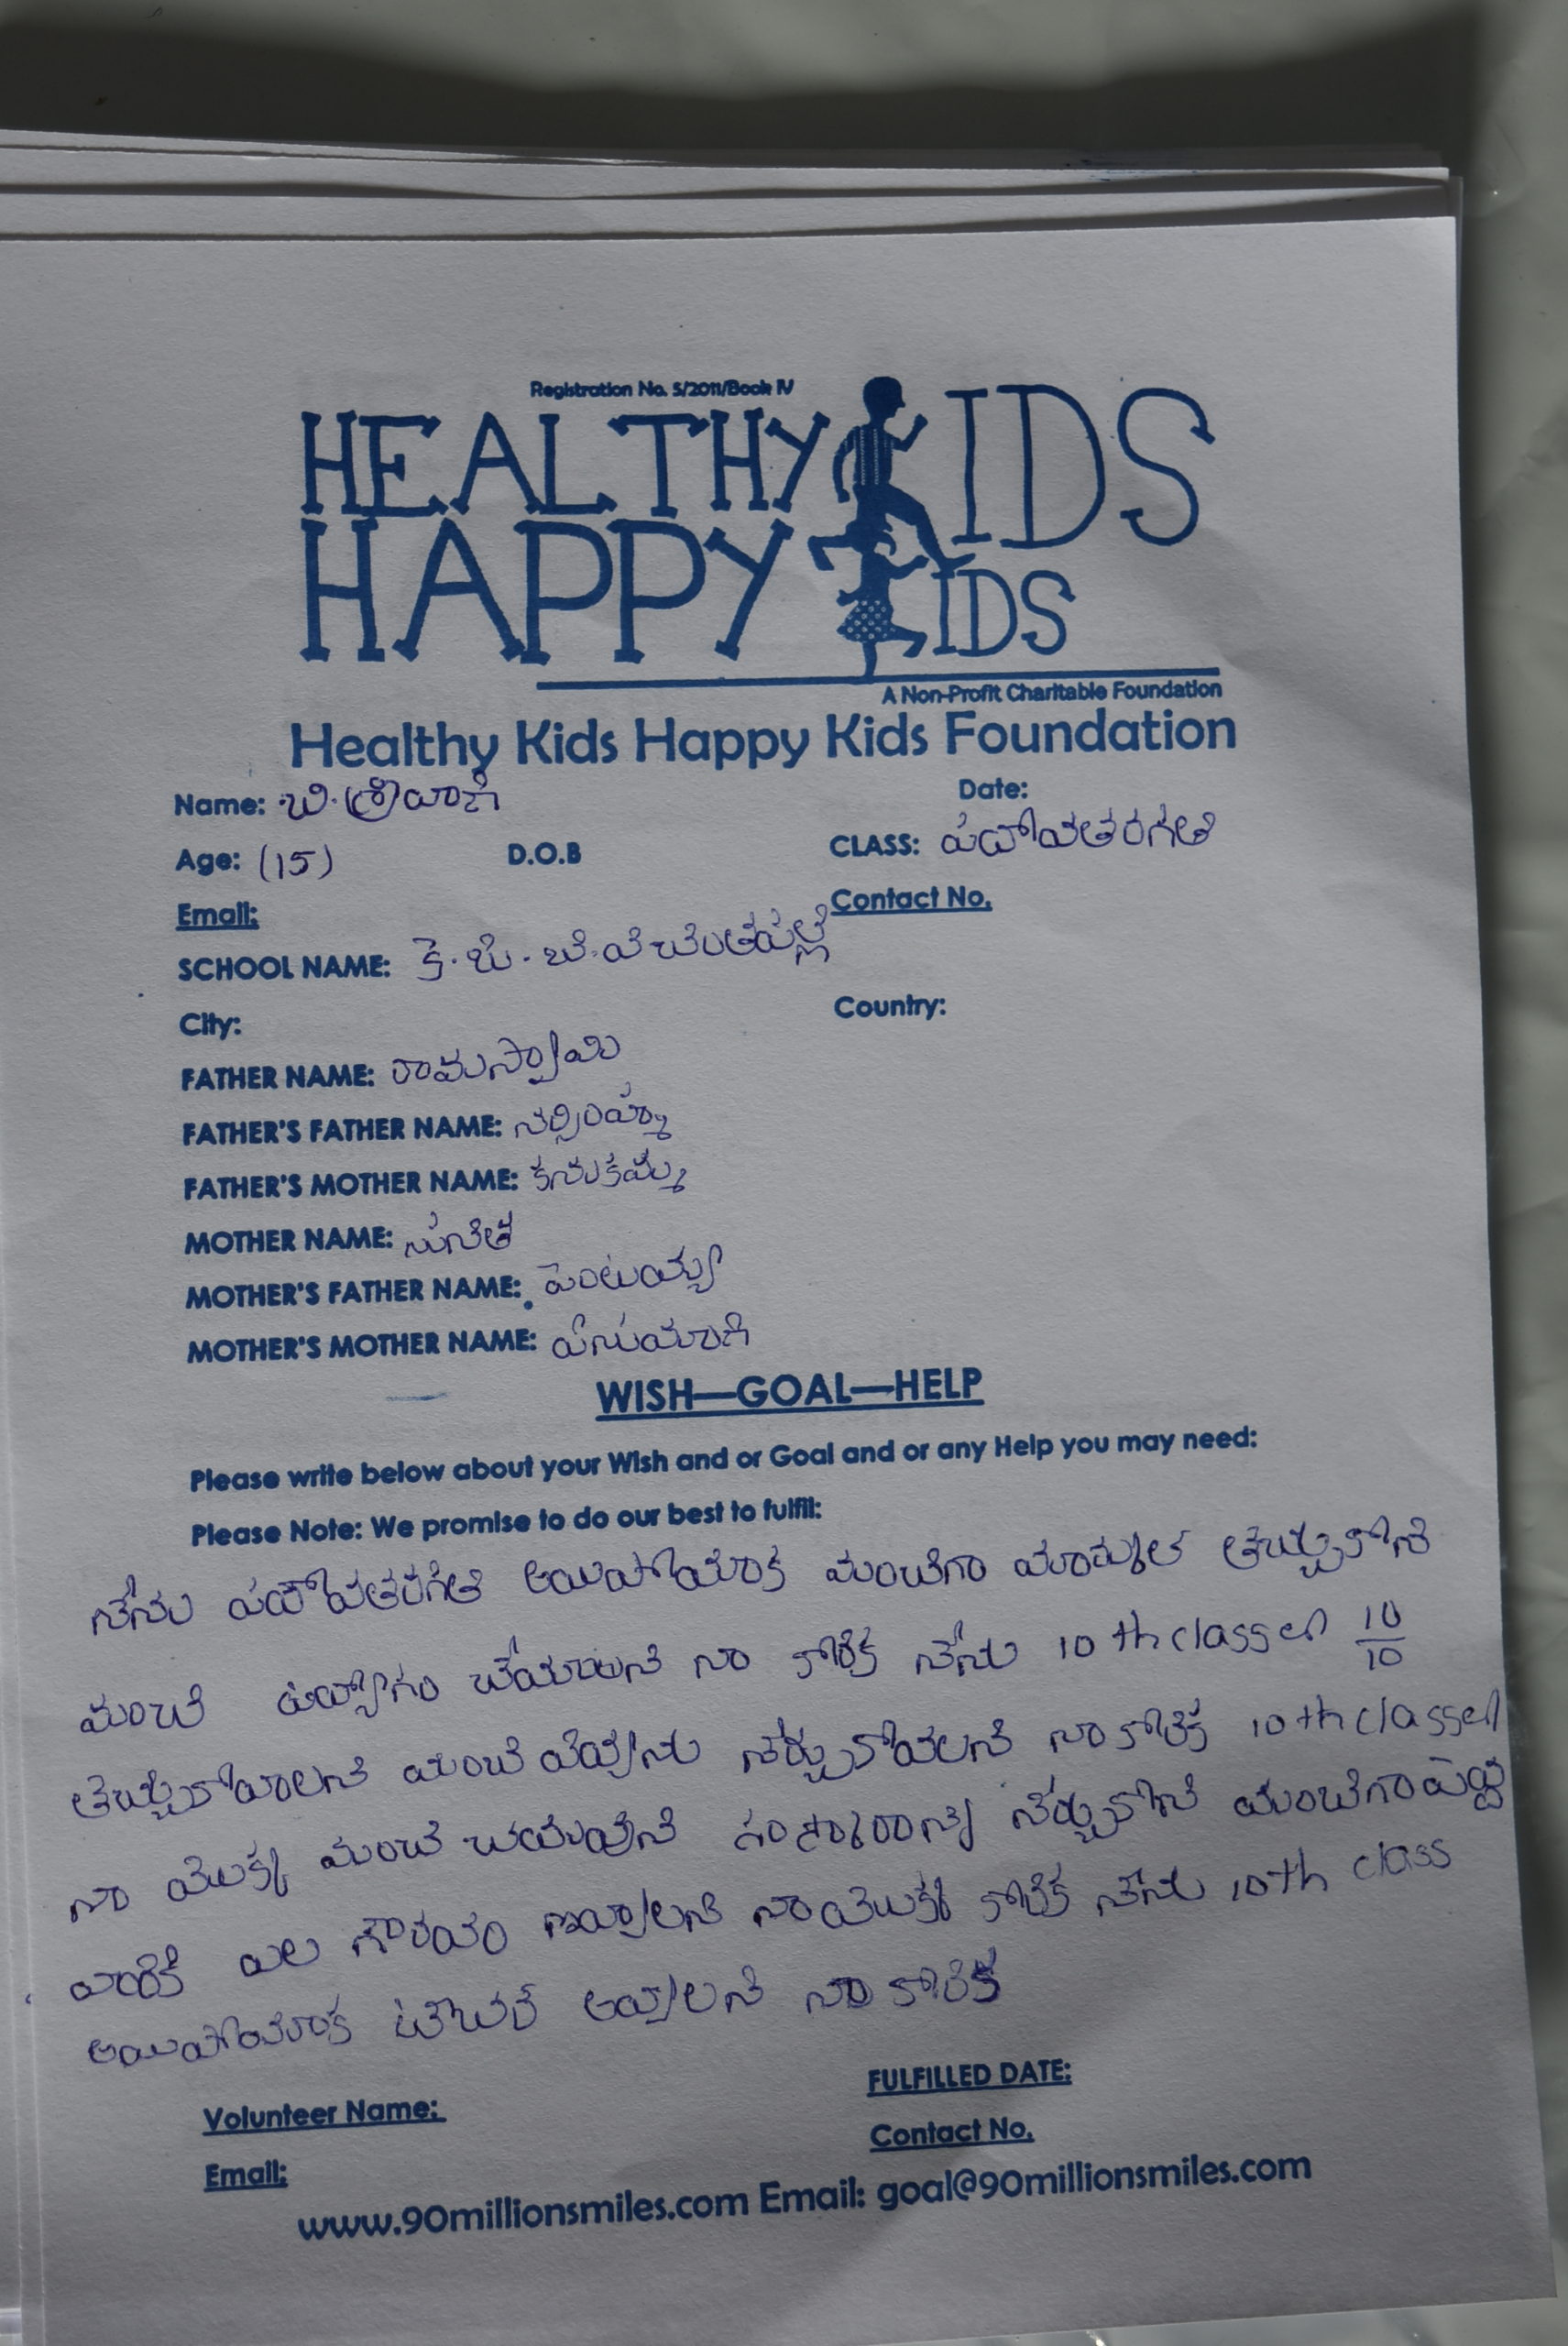 Registration No. 5/2011/Book IV
HEALTHY KIDS
HAPPY KIDS
A Non-Profit Charitable Foundation
Healthy Kids Happy Kids Foundation
Name: బి. శ్రీవాణి Date:
Age: (15) D.O.B CLASS: పదోవతరగతి
Email: Contact No.
SCHOOL NAME: కె. జి. బి. వి చింతపల్లి
City: Country:
FATHER NAME: రామస్వామి
FATHER'S FATHER NAME: నర్సింహ్మ
FATHER'S MOTHER NAME: కనుకమ్మ
MOTHER NAME: సునిత
MOTHER'S FATHER NAME: పెంటయ్య
MOTHER'S MOTHER NAME:
WISH—GOAL—HELP
Please write below about your Wish and or Goal and or any Help you may need:
Please Note: We promise to do our best to fulfil:
నేను పదోవతరగతి అయిపోయాక మంచిగా మార్కుల తెచ్చుకోని
మంచి ఉద్యోగం చేయాలని నా కోరిక నేను 10 th classలో 10/10
తెచ్చుకోవాలని మంచి విద్యను నేర్చుకోవలని నా కోరిక 10th classలో
నా యొక్క మంచి చదువుని సంస్కారాన్ని నేర్చుకోని మంచిగా పెద్ద
వారికి వల గౌరవం ఇవ్వాలని నా యొక్క కోరిక నేను 10th class
అయిపోయాక టీచర్ అవ్వాలని నా కోరిక
Volunteer Name: FULFILLED DATE:
Email: Contact No.
www.90millionsmiles.com Email: goal@90millionsmiles.com